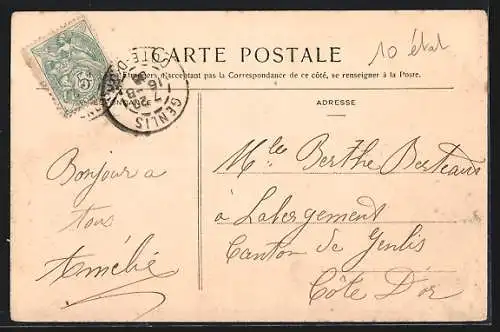 CARTE POSTALE
10 état
d'acceptant pas la Correspondance de ce côté, se renseigner à la Poste.
GENLIS
CÔTE-D'OR
ADRESSE
Mlle Berthe Berteaux
à Labergement
Canton de Genlis
Côte D'or
Bonjour a
tous
Amélie